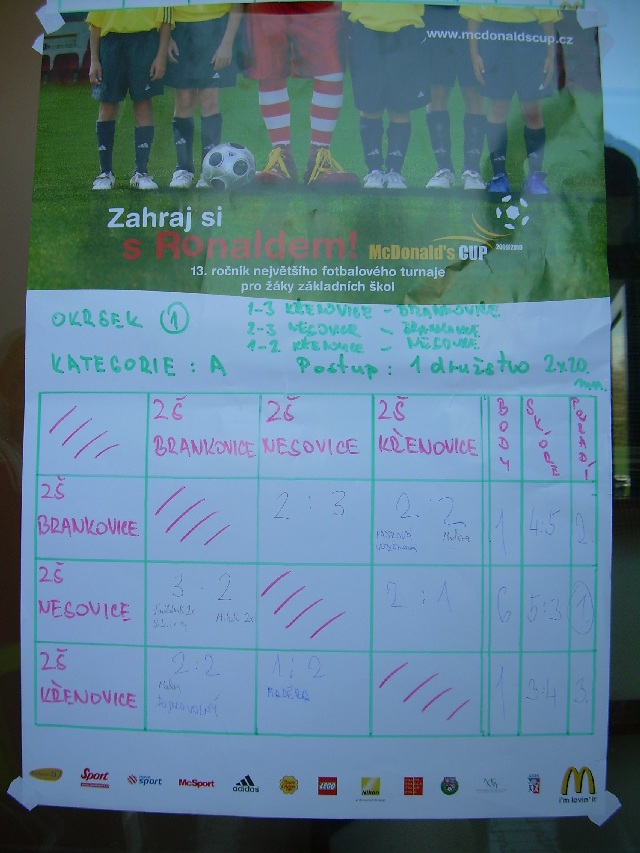 www.mcdonaldscup.cz
Zahraj si
s Ronaldem!
McDonald's CUP
2009/2010
13. ročník největšího fotbalového turnaje
pro žáky základních škol
OKRSEK 1
1-3 KŘENOVICE - BRANKOVICE
2-3 NESOVICE - BRANKOVICE
1-2 KŘENOVICE - NESOVICE
KATEGORIE : A Postup : 1 družstvo 2x20 min.
ZŠ BRANKOVICE ZŠ NESOVICE ZŠ KŘENOVICE BODY SKÓRE POŘADÍ
ZŠ BRANKOVICE 2 : 3 2 : 2 1 4:5 2.
ZŠ NESOVICE 3 : 2 2 : 1 6 5:3 1
ZŠ KŘENOVICE 2:2 1:2 1 3:4 3.
Sport
sport
McSport
adidas
LEGO
Nikon
i'm lovin' it